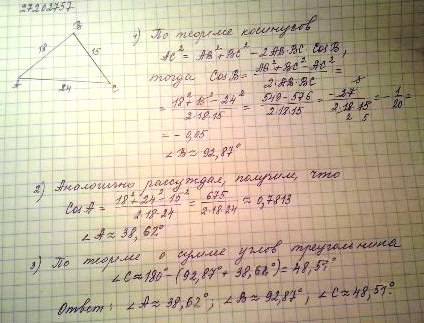 27202757
B
18
15
A
24
C
1) По теореме косинусов
AC² = AB² + BC² - 2AB·BC CosB,
тогда CosB = (AB² + BC² - AC²)/(2·AB·BC) =
= (18² + 15² - 24²)/(2·18·15) = (549 - 576)/(2·18·15) = (-27)/(2·18·15) = -1/20 =
= -0,05
∠B ≈ 92,87°
2) Аналогично рассуждая, получим, что
CosA = (18² + 24² - 15²)/(2·18·24) = 675/(2·18·24) ≈ 0,7813
∠A ≈ 38,62°
3) По теореме о сумме углов треугольника
∠C ≈ 180° - (92,87° + 38,62°) = 48,51°
Ответ: ∠A ≈ 38,62°, ∠B ≈ 92,87°, ∠C ≈ 48,51°.